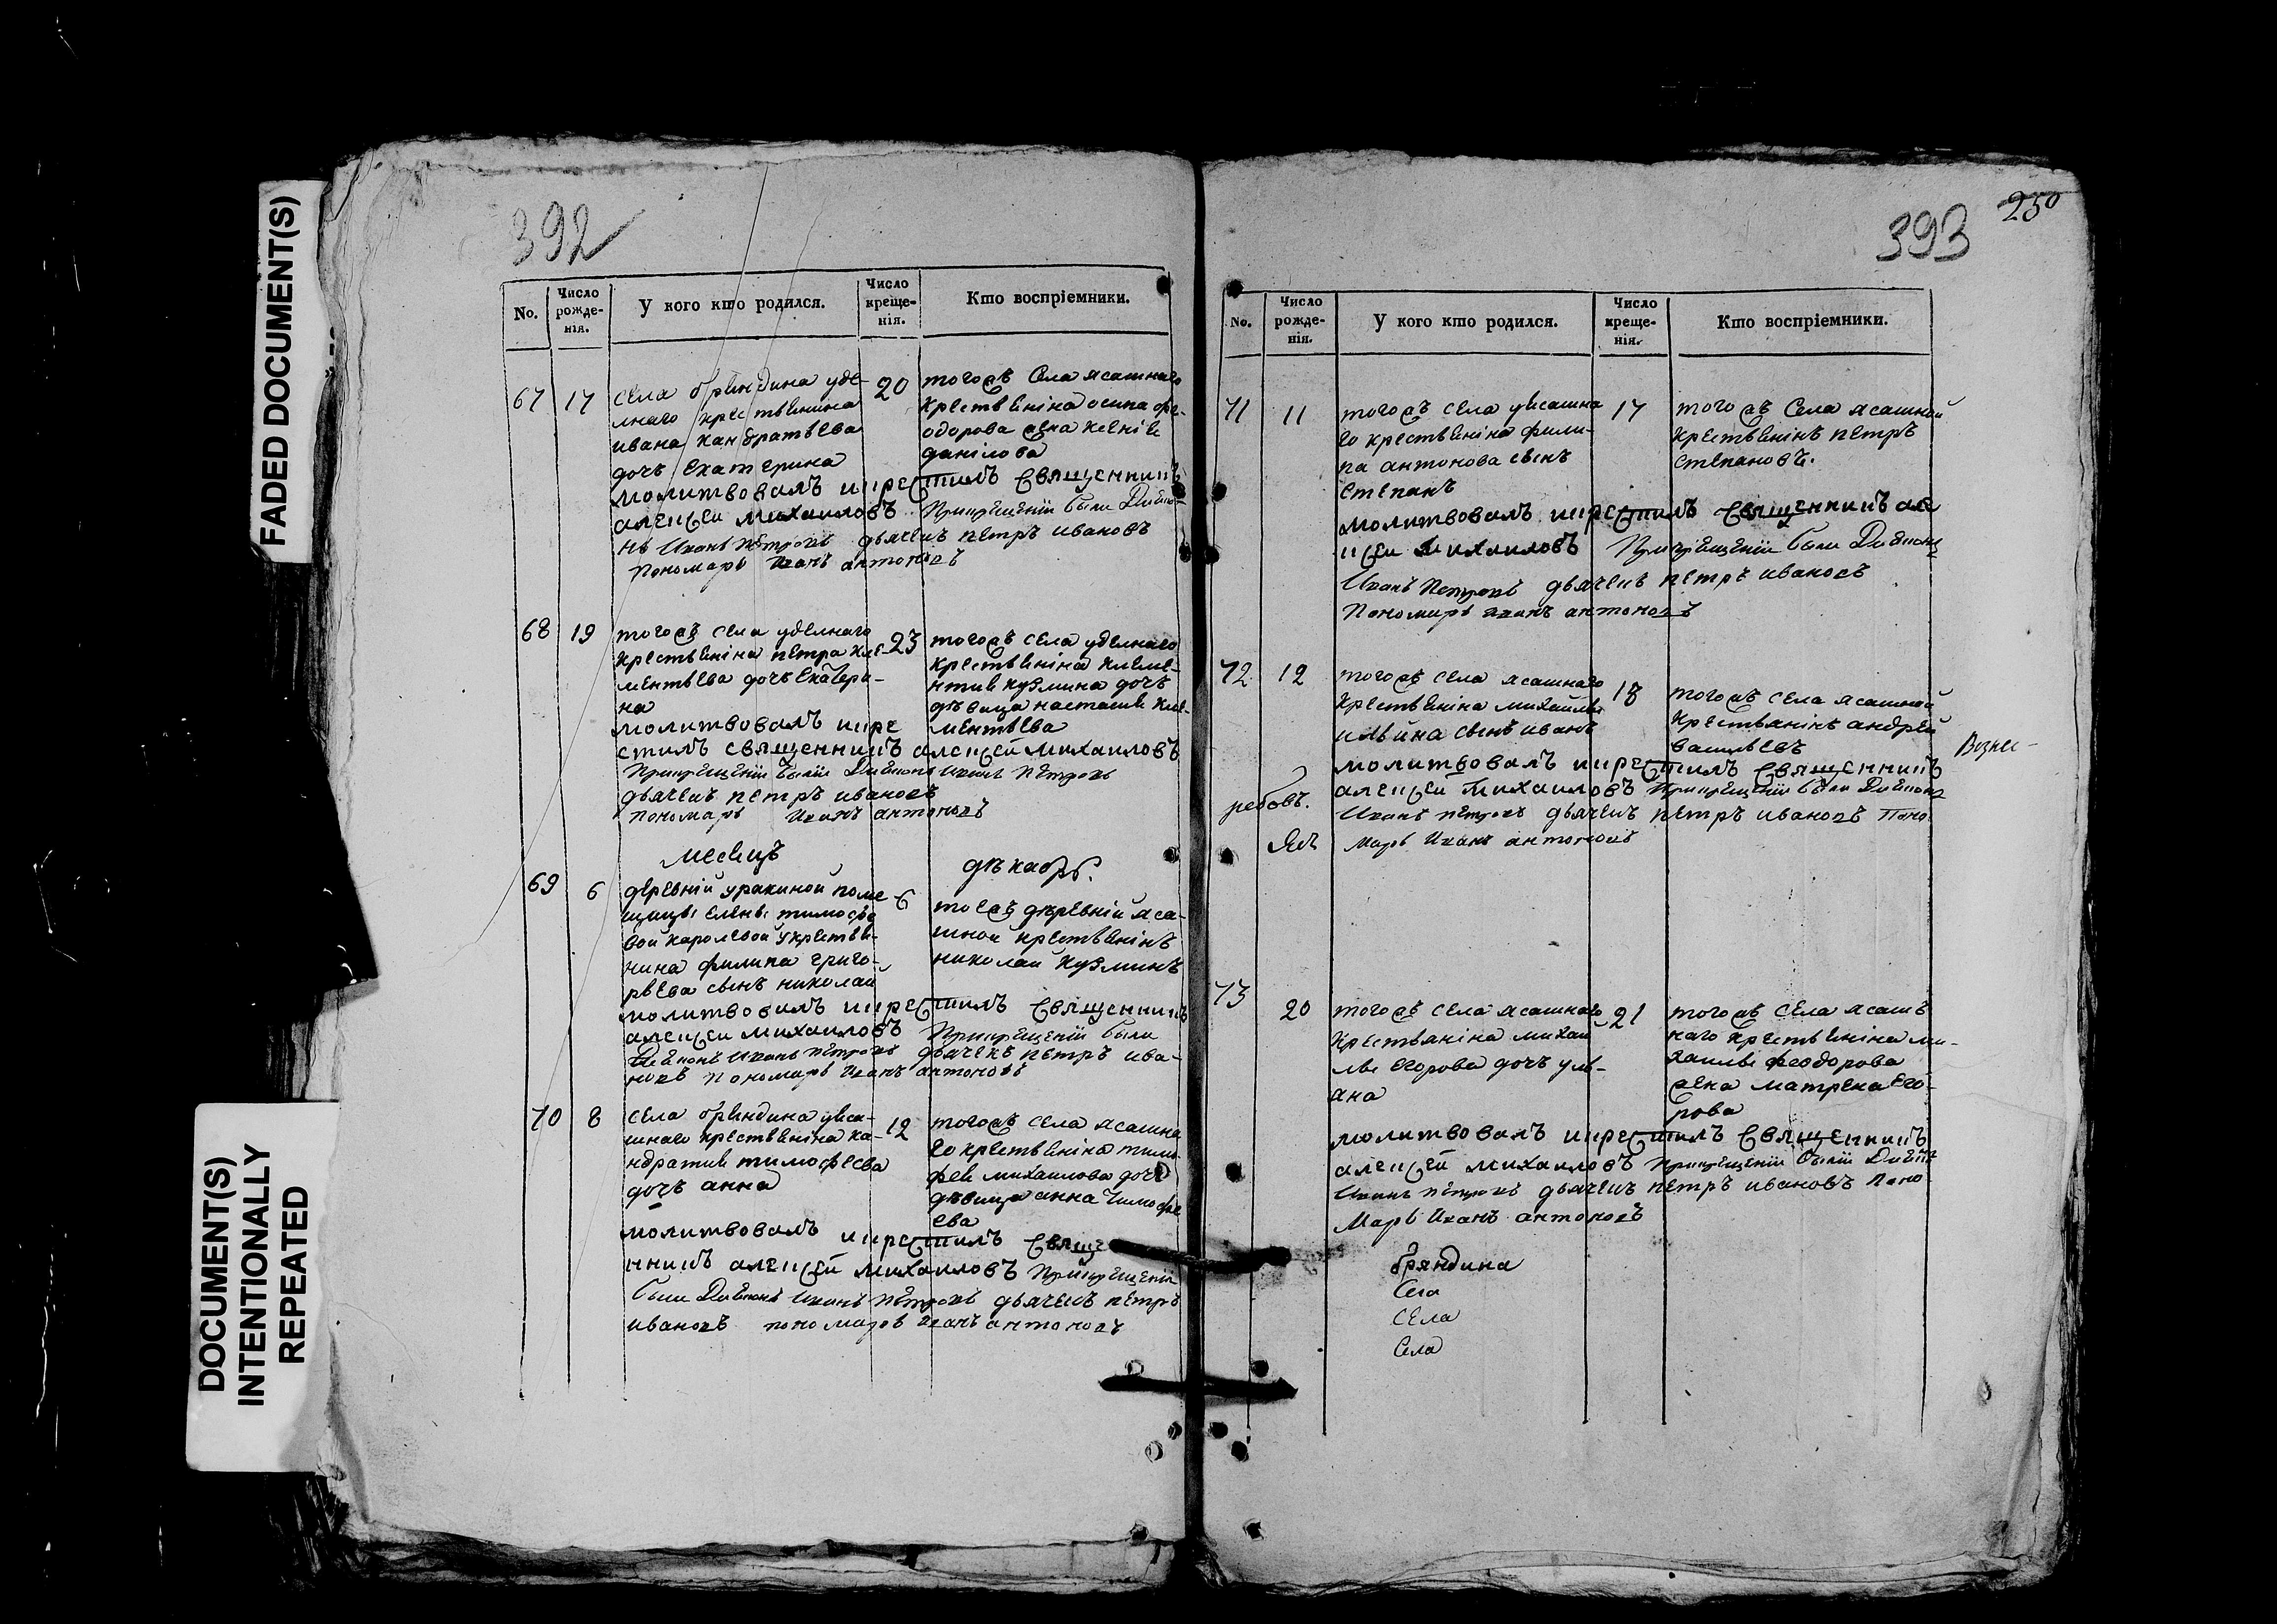 FADED DOCUMENT(S)
DOCUMENT(S)
INTENTIONALLY
REPEATED
392
No.
Число рожде-нія.
У кого кто родился.
Число креще-нія.
Кто воспріемники.
67
17
села бряндина уде-
лнаго крествянина
ивана кандратьева
дочъ екатерина
20
тогожъ села ясашнаго
крествянина осипа фе-
одорова жена ксенія
данілова
молитвовалъ икрестилъ священникъ
алеѯеи михаиловъ Прикрещеніи были Діяко-
нъ Иванъ Петровъ дьячекъ петръ ивановъ
Пономарь Иванъ антоновъ
68
19
тогожъ села уделнаго
крествяніна петра кле-
ментьева дочъ екатери-
на
23
тогожъ села уделнаго
крествяніна клеме-
нтия кузмина дочъ
дѣвица настасия кле-
ментьева
молитвовалъ икре
стилъ священникъ алеѯей михаиловъ
Прикрещеніи быліи Діяконъ Иванъ Петровъ
дьячекъ петръ ивановъ
пономарь Иванъ антоновъ
месяцъ декабрь.
69
6
деревніи уракиной поме
щицы елены тимофѣе
вои каролевои укрествя-
нина филипа григо-
рьева сынъ николаи
6
тоежъ деревніи яса-
шнои крествянінъ
николаи кузминъ
молитвовалъ икрестилъ священникъ
алеѯеи михаиловъ Прикрещеніи были
Діяконъ Иванъ Петровъ дьячекъ петръ ива-
новъ пономарь Иванъ антоновъ
70
8
села бряндина уяса-
шнаго крествяніна ка-
ндратия тимофеева
дочъ анна
12
тогожъ села ясашна
го крествяніна тимо
фея михаилова дочъ
дѣвица анна тимофе
ева
молитвовалъ икрестилъ свяще
нникъ алеѯей михаиловъ Прикрещеніи
были Діяконъ Иванъ Петровъ дьячекъ петръ
ивановъ пономарь Иванъ антоновъ
393
250
No.
Число рожде-нія.
У кого кто родился.
Число креще-нія.
Кто воспріемники.
71
11
тогожъ села уясашна
го крествяніна фили-
па антонова сынъ
степанъ
17
тогожъ села ясашной
крествянінъ петръ
степановъ.
молитвовалъ икрестилъ священникъ але
ѯеи михаиловъ Прикрещеніи были Діяконъ
Иванъ Петровъ дьячекъ петръ ивановъ
Пономарь Иванъ антоновъ
72
12
тогожъ села ясашнаго
крествяніна михаилы
ильина сынъ иванъ
18
тогожъ села ясашной
крествянінъ андрей
васильевъ
молитвовалъ икрестилъ священникъ
алеѯеи михаиловъ Прикрещеніи были Діяконъ
Иванъ Петровъ дьячекъ петръ ивановъ Поно
марь Иванъ антоновъ
73
20
тогожъ села ясашнаго
крествяніна михаи
лы егорова дочъ уль-
ана
21
тогожъ села ясаш
наго крествяніна ми-
хаилы феодорова
жена матрена его-
рова
молитвовалъ икрестилъ священникъ
алеѯей михаиловъ Прикрещеніи быліи Діяконъ
Иванъ Петровъ дьячекъ петръ ивановъ Поно
марь Иванъ антоновъ
бряндина
Села
Села
Села